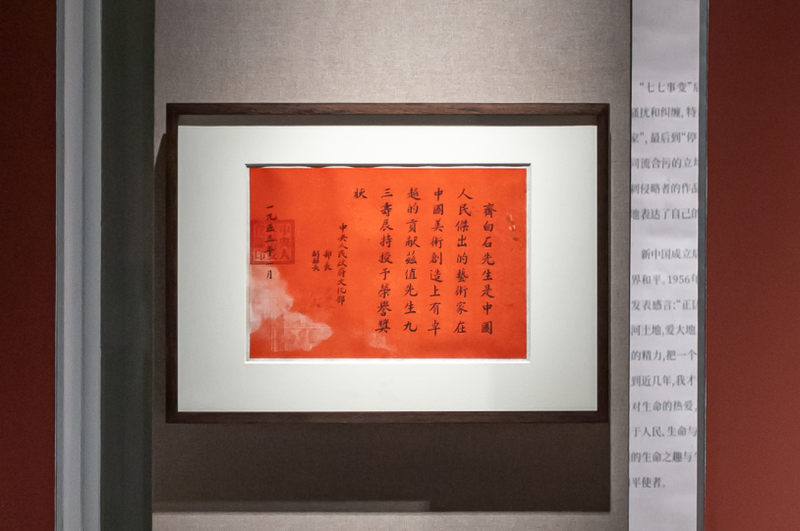 齊白石先生是中國
人民傑出的藝術家在
中國美術創造上有卓
越的貢獻茲值先生九
三壽辰特授予榮譽獎
狀
中央人民政府文化部
部長
副部長
一九五三年一月
“七七事变”
骚扰和纠缠,特
家”,最后到“停
司流合污的立
刺侵略者的作品
地表达了自己的
新中国成立
界和平。1956年
发表感言:“正
河土地,爱大地
的精力,把一个
到近几年,我才
对生命的热爱,
于人民,生命与
的生命之趣与
平使者。